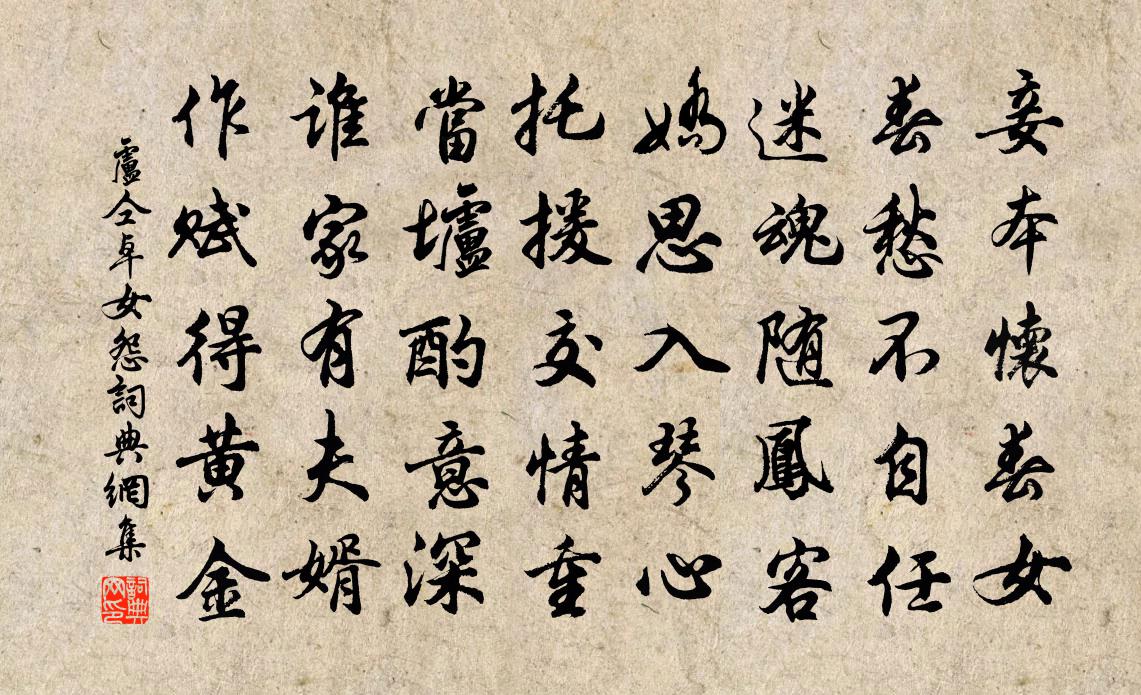 妾本懷春女
春愁不自任
迷魂随鳳客
嬌思入琴心
托援交情重
當壚酌意深
誰家有夫婿
作賦得黄金
盧仝卓女怨詞典網集
詞典网印